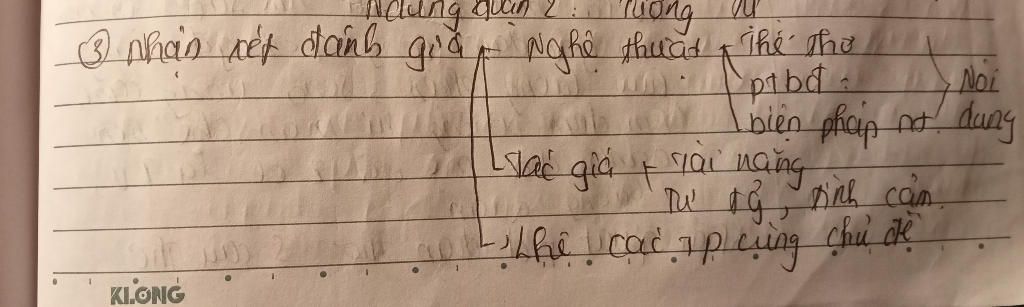 Ndung quan 2 : Tương tự
③ Nhận xét đánh giá Nghệ thuật thể thơ
ptbđ : Nội
biện pháp nt. dung
Tác giả + Tài năng
Tư tg, tình cảm.
Lhệ các tp cùng chủ đề
KLONG